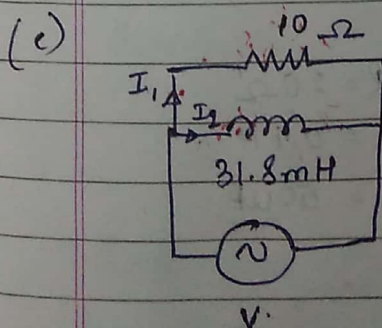 (c)
10 Ω
I₁
I₂
31.8mH
V.